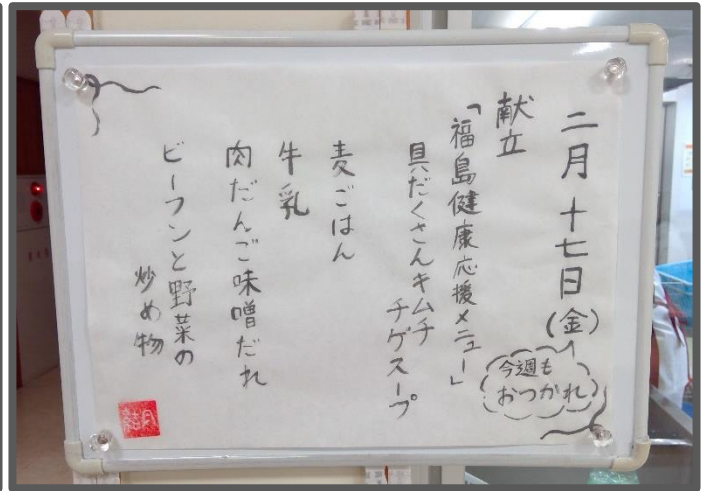 二月十七日(金)
今週も
おつかれ
献立
「福島健康応援メニュー」
具だくさんキムチ
チゲスープ
麦ごはん
牛乳
肉だんご味噌だれ
ビーフンと野菜の
炒め物